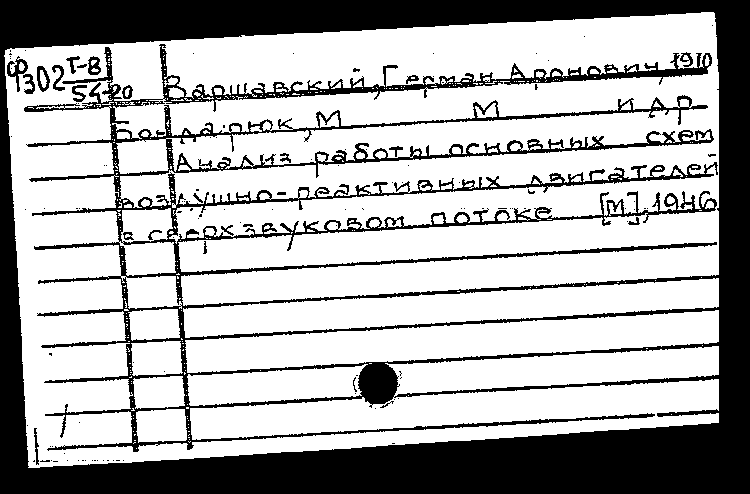 Ф Т-8
9302 54-20 Варшавский, Герман Аронович, 1910
Бондарюк, М М и др
Анализ работы основных схем
воздушно-реактивных двигателей
в сверхзвуковом потоке [М], 1946